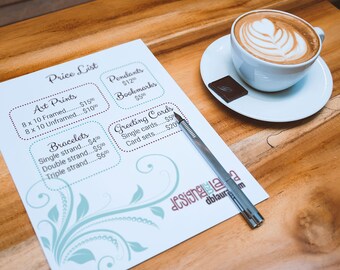 Price List
Art Prints
8 x 10 Framed.......$15⁰⁰
8 x 10 Unframed....$10⁰⁰
Pendants
$12⁰⁰
Bookmarks
$5⁰⁰
Bracelets
Single strand....$4⁰⁰
Double strand...$5⁰⁰
Triple strand.....$6⁰⁰
Greeting Cards
Single cards....$5⁰⁰
Card sets......$20
designed by laura
dblaura